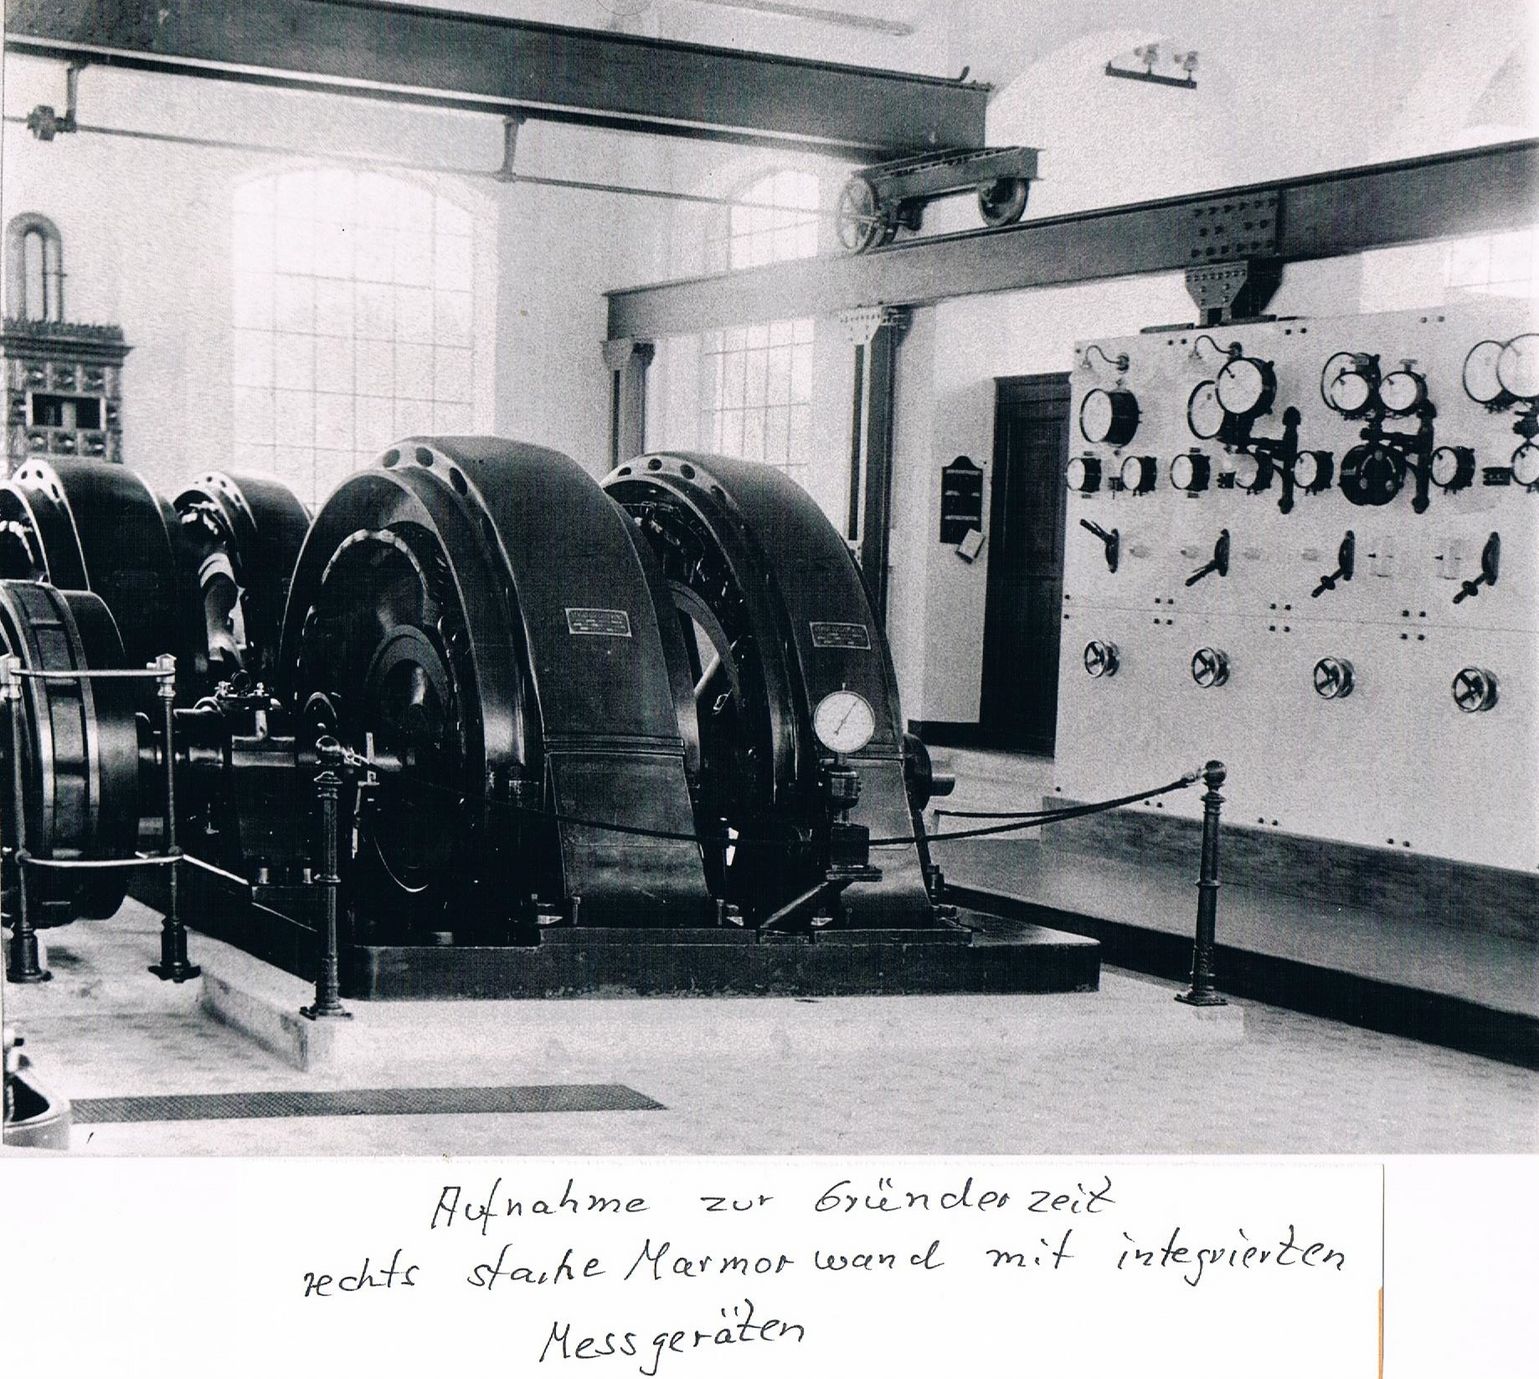 Aufnahme zur Gründerzeit
rechts starke Marmorwand mit integrierten
Messgeräten